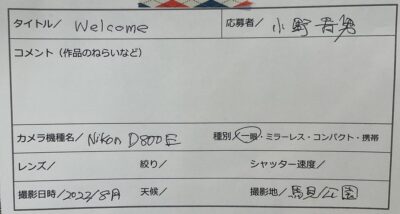 タイトル/ Welcome 応募者/ 小野吾男
コメント（作品のねらいなど）
カメラ機種名/ Nikon D800E 種別/ 一眼・ミラーレス・コンパクト・携帯
レンズ/ 絞り/ シャッター速度/
撮影日時/2022/8月 天候/ 撮影地/ 馬見公園